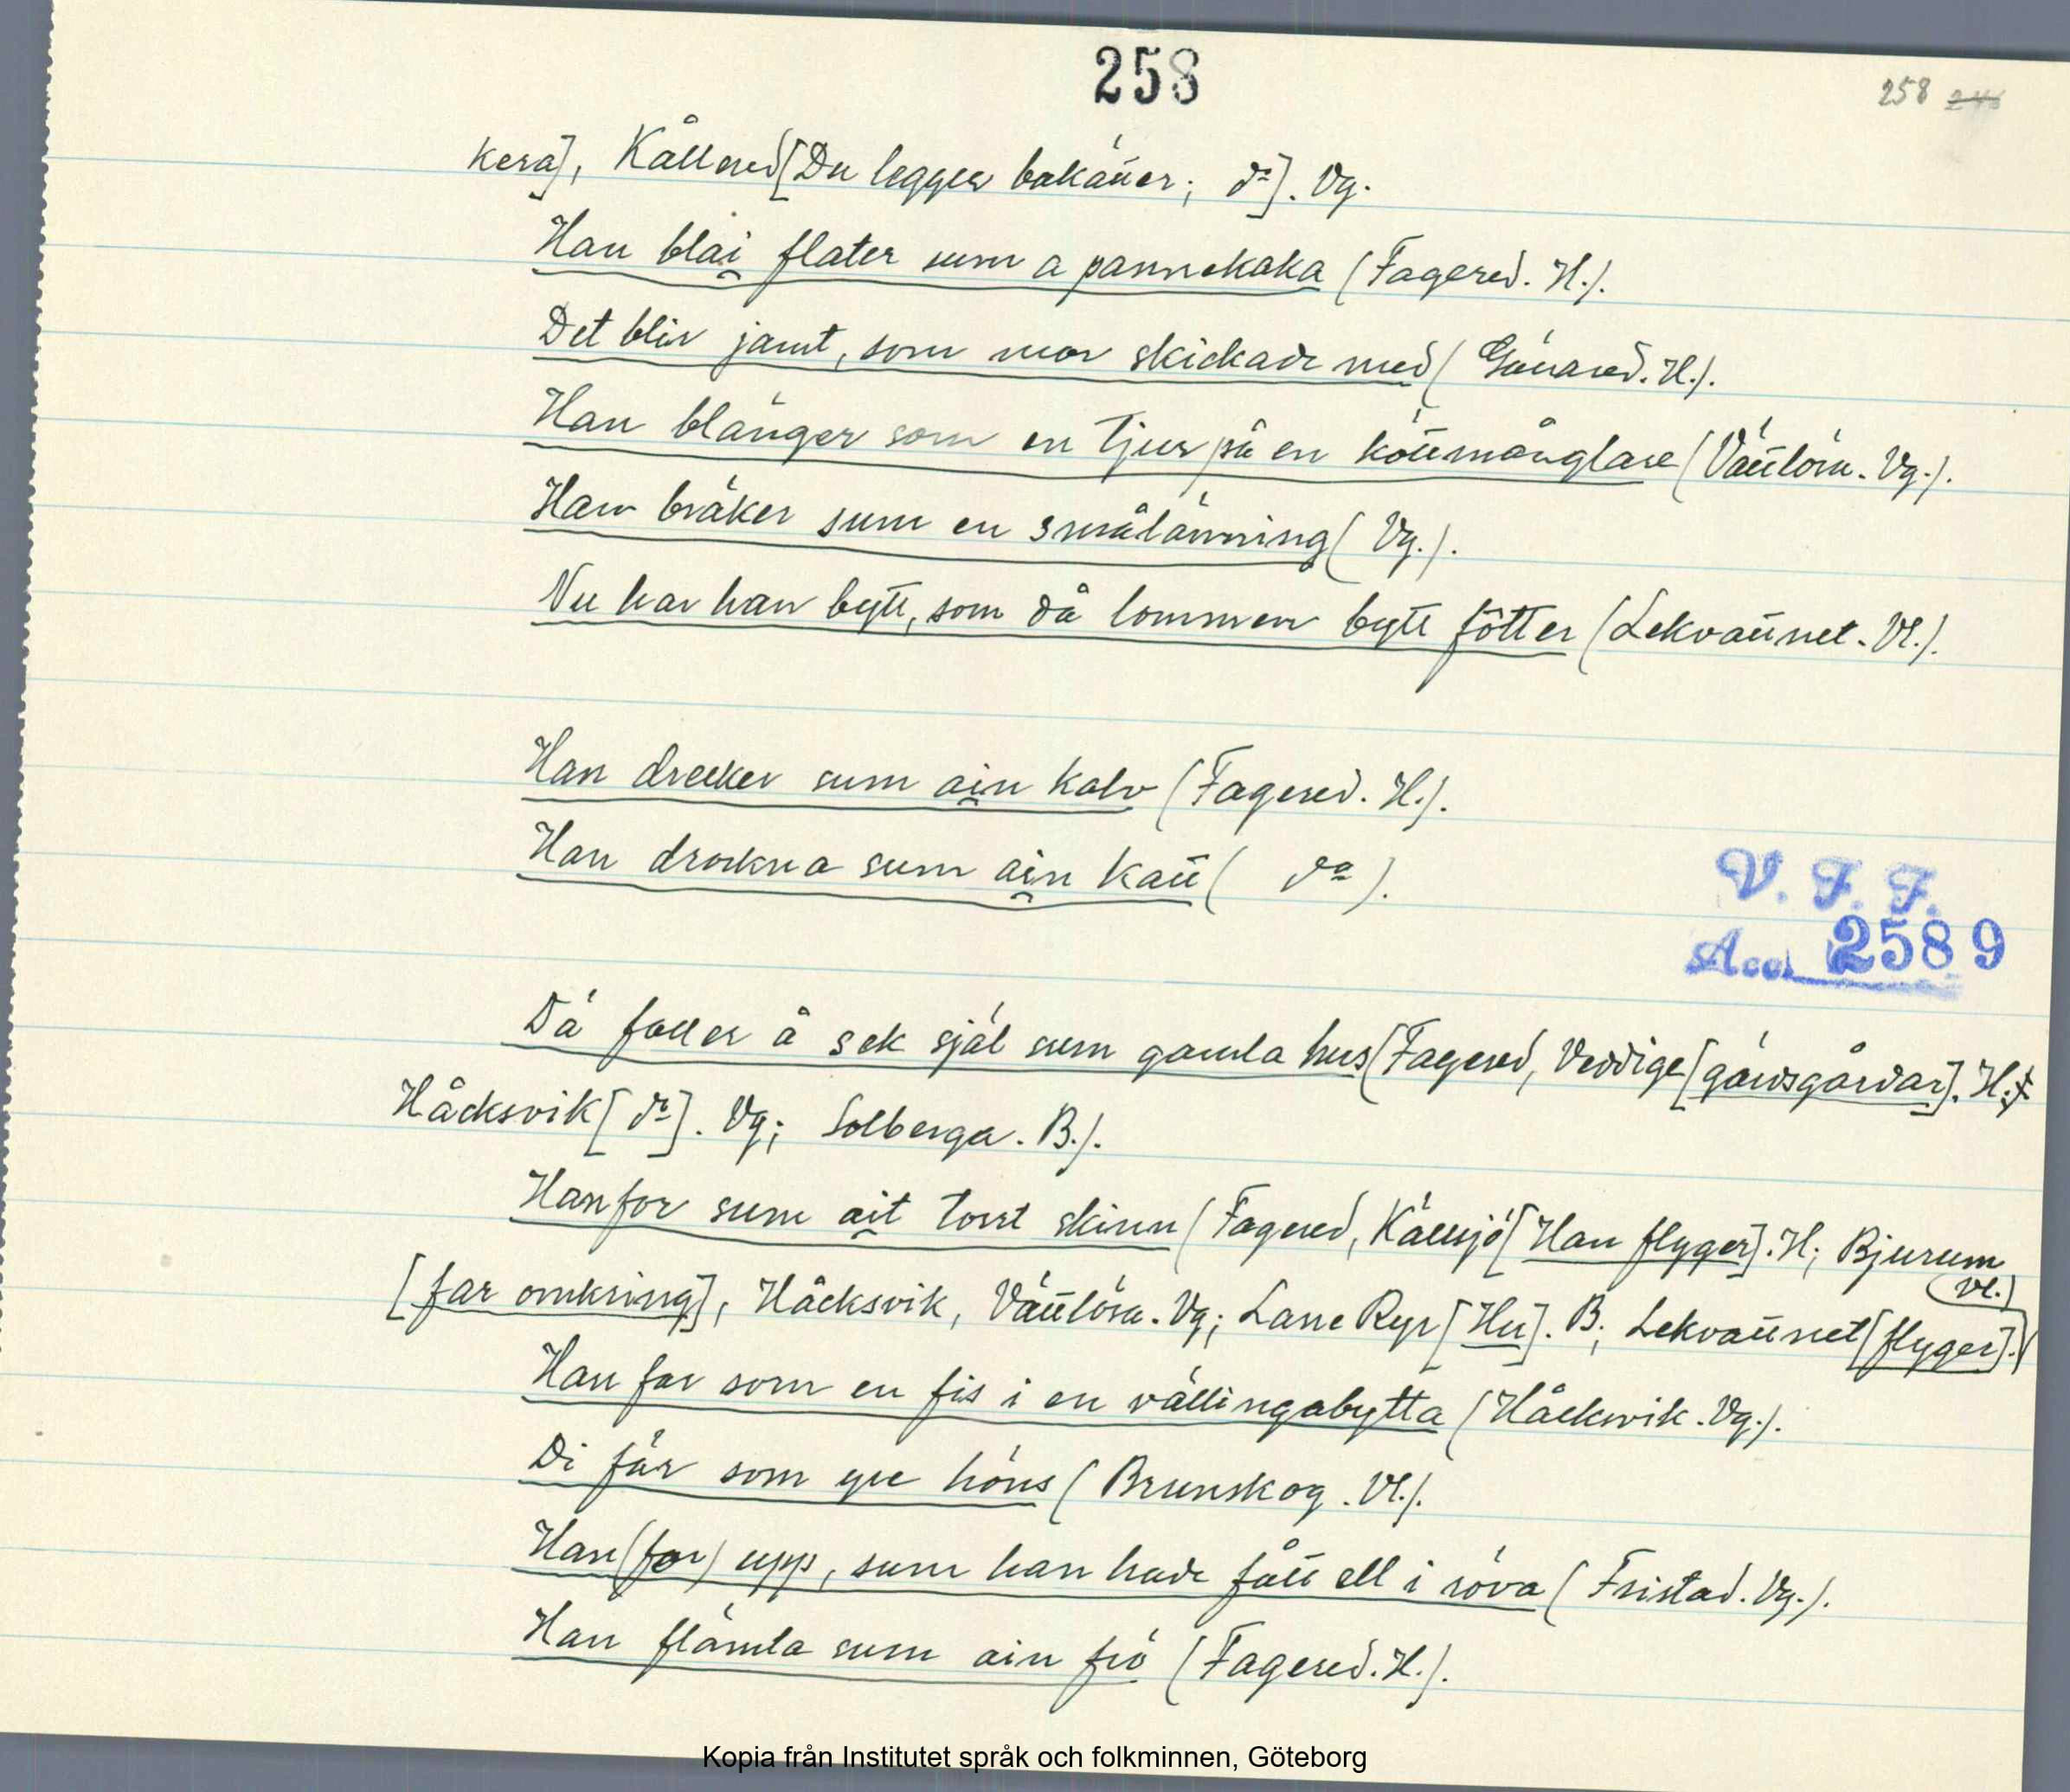 258
258 246
kera], Kållered [Du legger bakätter; dº]. Vg.
Han blai flater sum a pannekaka (Fagered. H.).
Det blir jämt, som mor skickade med (Gunnared. H.).
Han blänger som en tjur på en köttmånglare (Vättlösa. Vg.).
Han bräker sum en smålänning (Vg.).
Nu har han bytt, som då lommen bytt fötter (Lekvattnet. Vl.).
Han drecker sum ain kalv (Fagered. H.).
Han drockna sum ain katt ( dº ).
V. F. F.
Acc. 2589
Dä faller å sek själ sum gamla hus (Fagered, Veddige [gärsgårdar]. H.;
Håcksvik [dº]. Vg; Solberga. B.).
Han for sum ait tort skinn (Fagered, Källsjö [Han flyger]. H; Bjurum
[far omkring], Håcksvik, Vättlösa. Vg; Lane Ryr [Hu]. B; Lekvattnet [flyger]. Vl.)
Han far som en fis i en vällingabytta (Håcksvik. Vg.).
Di fär som yre höns (Brunskog. Vl.).
Han (for) upp, sum han hade fått ell i röva (Fristad. Vg.).
Han flämta sum ain frö (Fagered. H.).
Kopia från Institutet språk och folkminnen, Göteborg